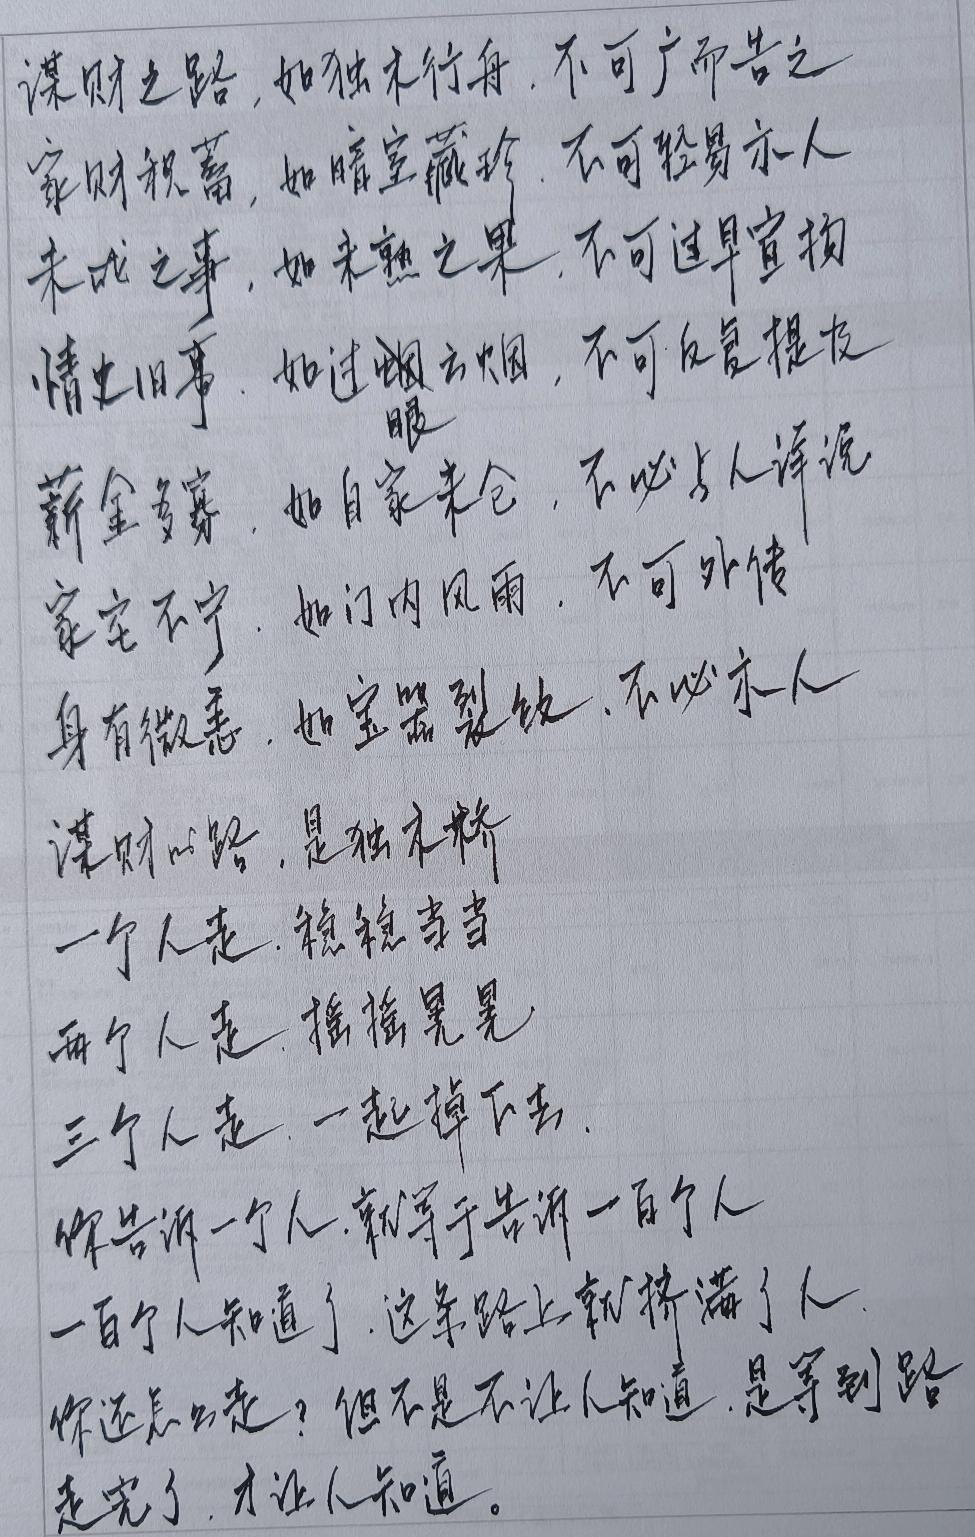 谋财之路,如独木行舟,不可广而告之
家财积蓄,如暗室藏珍,不可轻易示人
未成之事,如未熟之果,不可过早宣扬
情史旧事,如过烟云烟,不可反复提及
眼
薪金多寡,如自家米仓,不必与人详说
家宅不宁,如门内风雨,不可外传
身有微恙,如宝器裂纹,不必示人
谋财的路,是独木桥
一个人走,稳稳当当
两个人走,摇摇晃晃
三个人走,一起掉下去.
你告诉一个人,就等于告诉一百个人
一百个人知道了,这条路上就挤满了人.
你还怎么走?但不是不让人知道,是等到路
走完了,才让人知道。